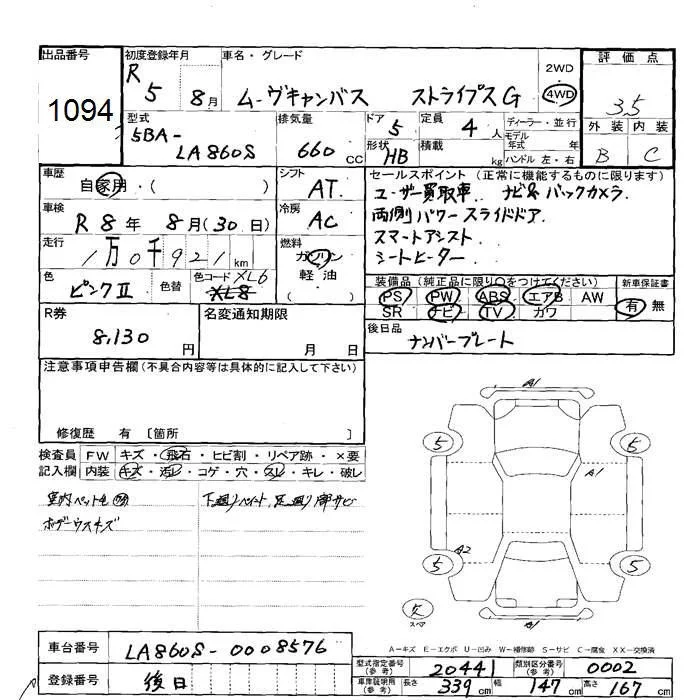 出品番号 初度登録年月 車名・グレード 2WD 評価点
1094 R 5 8月 ムーヴキャンバス ストライプスG 4WD 3.5
型式 排気量 ドア 5 定員 4人 ディーラー・並行 外装 内装
5BA- LA860S 660cc 形状 HB 積載 kg モデル年式 年 ハンドル 左・右 B C
車歴 シフト セールスポイント (正常に機能するものに限ります)
自家用・( ) AT ユーザー買取車. ナビ&バックカメラ.
車検 冷房 両側パワースライドドア.
R8年 8月(30日) AC スマートアシスト.
走行 燃料 シートヒーター.
1万0千921km ガソリン
色 色替 色コード XL6 軽油
ピンクII XL8 ( )
装備品 (純正品に限り○をつけてください) 新車保証書
PS PW ABS エアB AW 有 無
SR ナビ TV カワ
R券 名変通知期限 後日品
8,130円 月 日 ナンバープレート
注意事項申告欄(不具合内容等は具体的に記入して下さい)
修復歴 有 〔箇所 〕
検査員 FW キズ・飛石・ヒビ割・リペア跡・×要
記入欄 内装 キズ・汚レ・コゲ・穴・スレ・キレ・破レ
室内ペット毛 下廻りペイント,足廻り
ボデーウスキズ
A1
5 5
A1
A2
5 5
欠
スペア
A1
A-キズ E-エクボ U-凹み W-補修跡 S-サビ C-腐食 XX-交換済
車台番号 LA860S-0008576
登録番号 後日
型式指定番号(参考) 20441 類別区分番号(参考) 0002
車庫証明用(参考) 長さ 339cm 幅 147cm 高さ 167cm